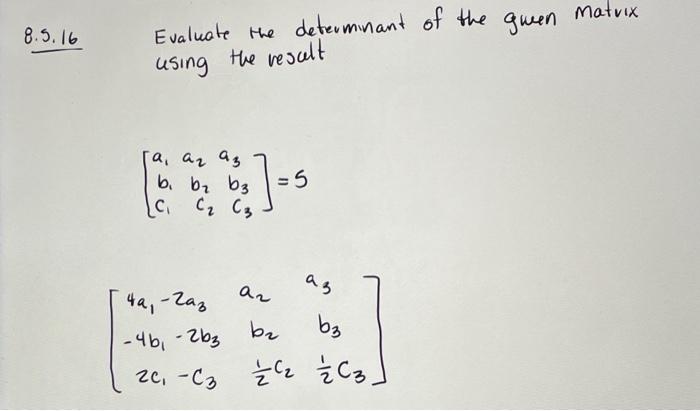 8.5.16 Evaluate the determinant of the given Matrix
using the result
[a₁ a₂ a₃
b₁ b₂ b₃
c₁ c₂ c₃] = 5
[4a₁ - 2a₃ a₂ a₃
-4b₁ - 2b₃ b₂ b₃
2c₁ - c₃ ½c₂ ½c₃]